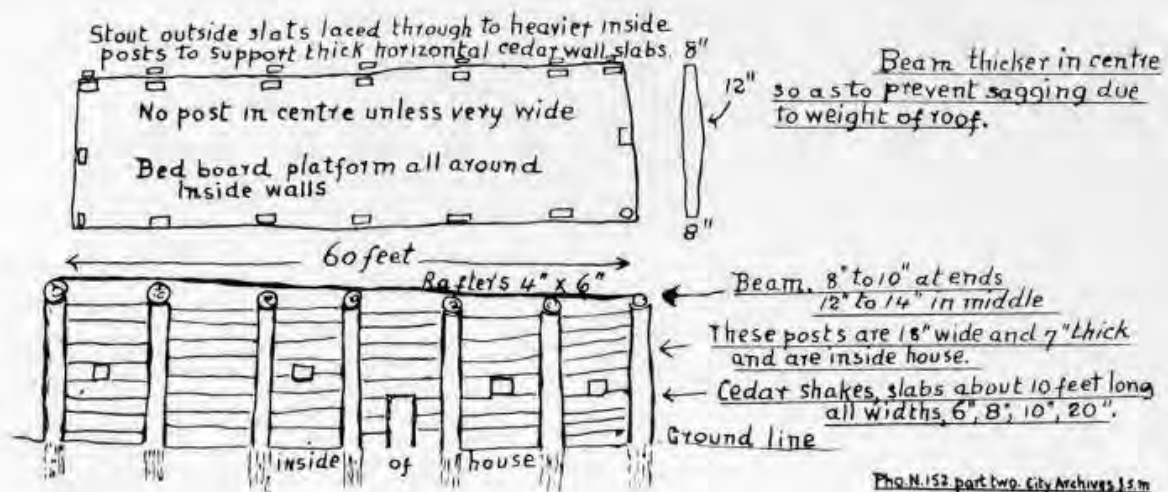 Stout outside slats laced through to heavier inside
posts to support thick horizontal cedar wall slabs.
No post in centre unless very wide
Bed board platform all around
Inside walls
8"
12"
8"
Beam thicker in centre
so as to prevent sagging due
to weight of roof.
60 feet
Rafters 4" x 6"
Beam. 8" to 10" at ends
12" to 14" in middle
These posts are 18" wide and 7" thick
and are inside house.
Cedar shakes, slabs about 10 feet long
all widths, 6", 8", 10", 20".
Ground line
inside of house
Pho. N. 152 part two. City Archives J.S.M